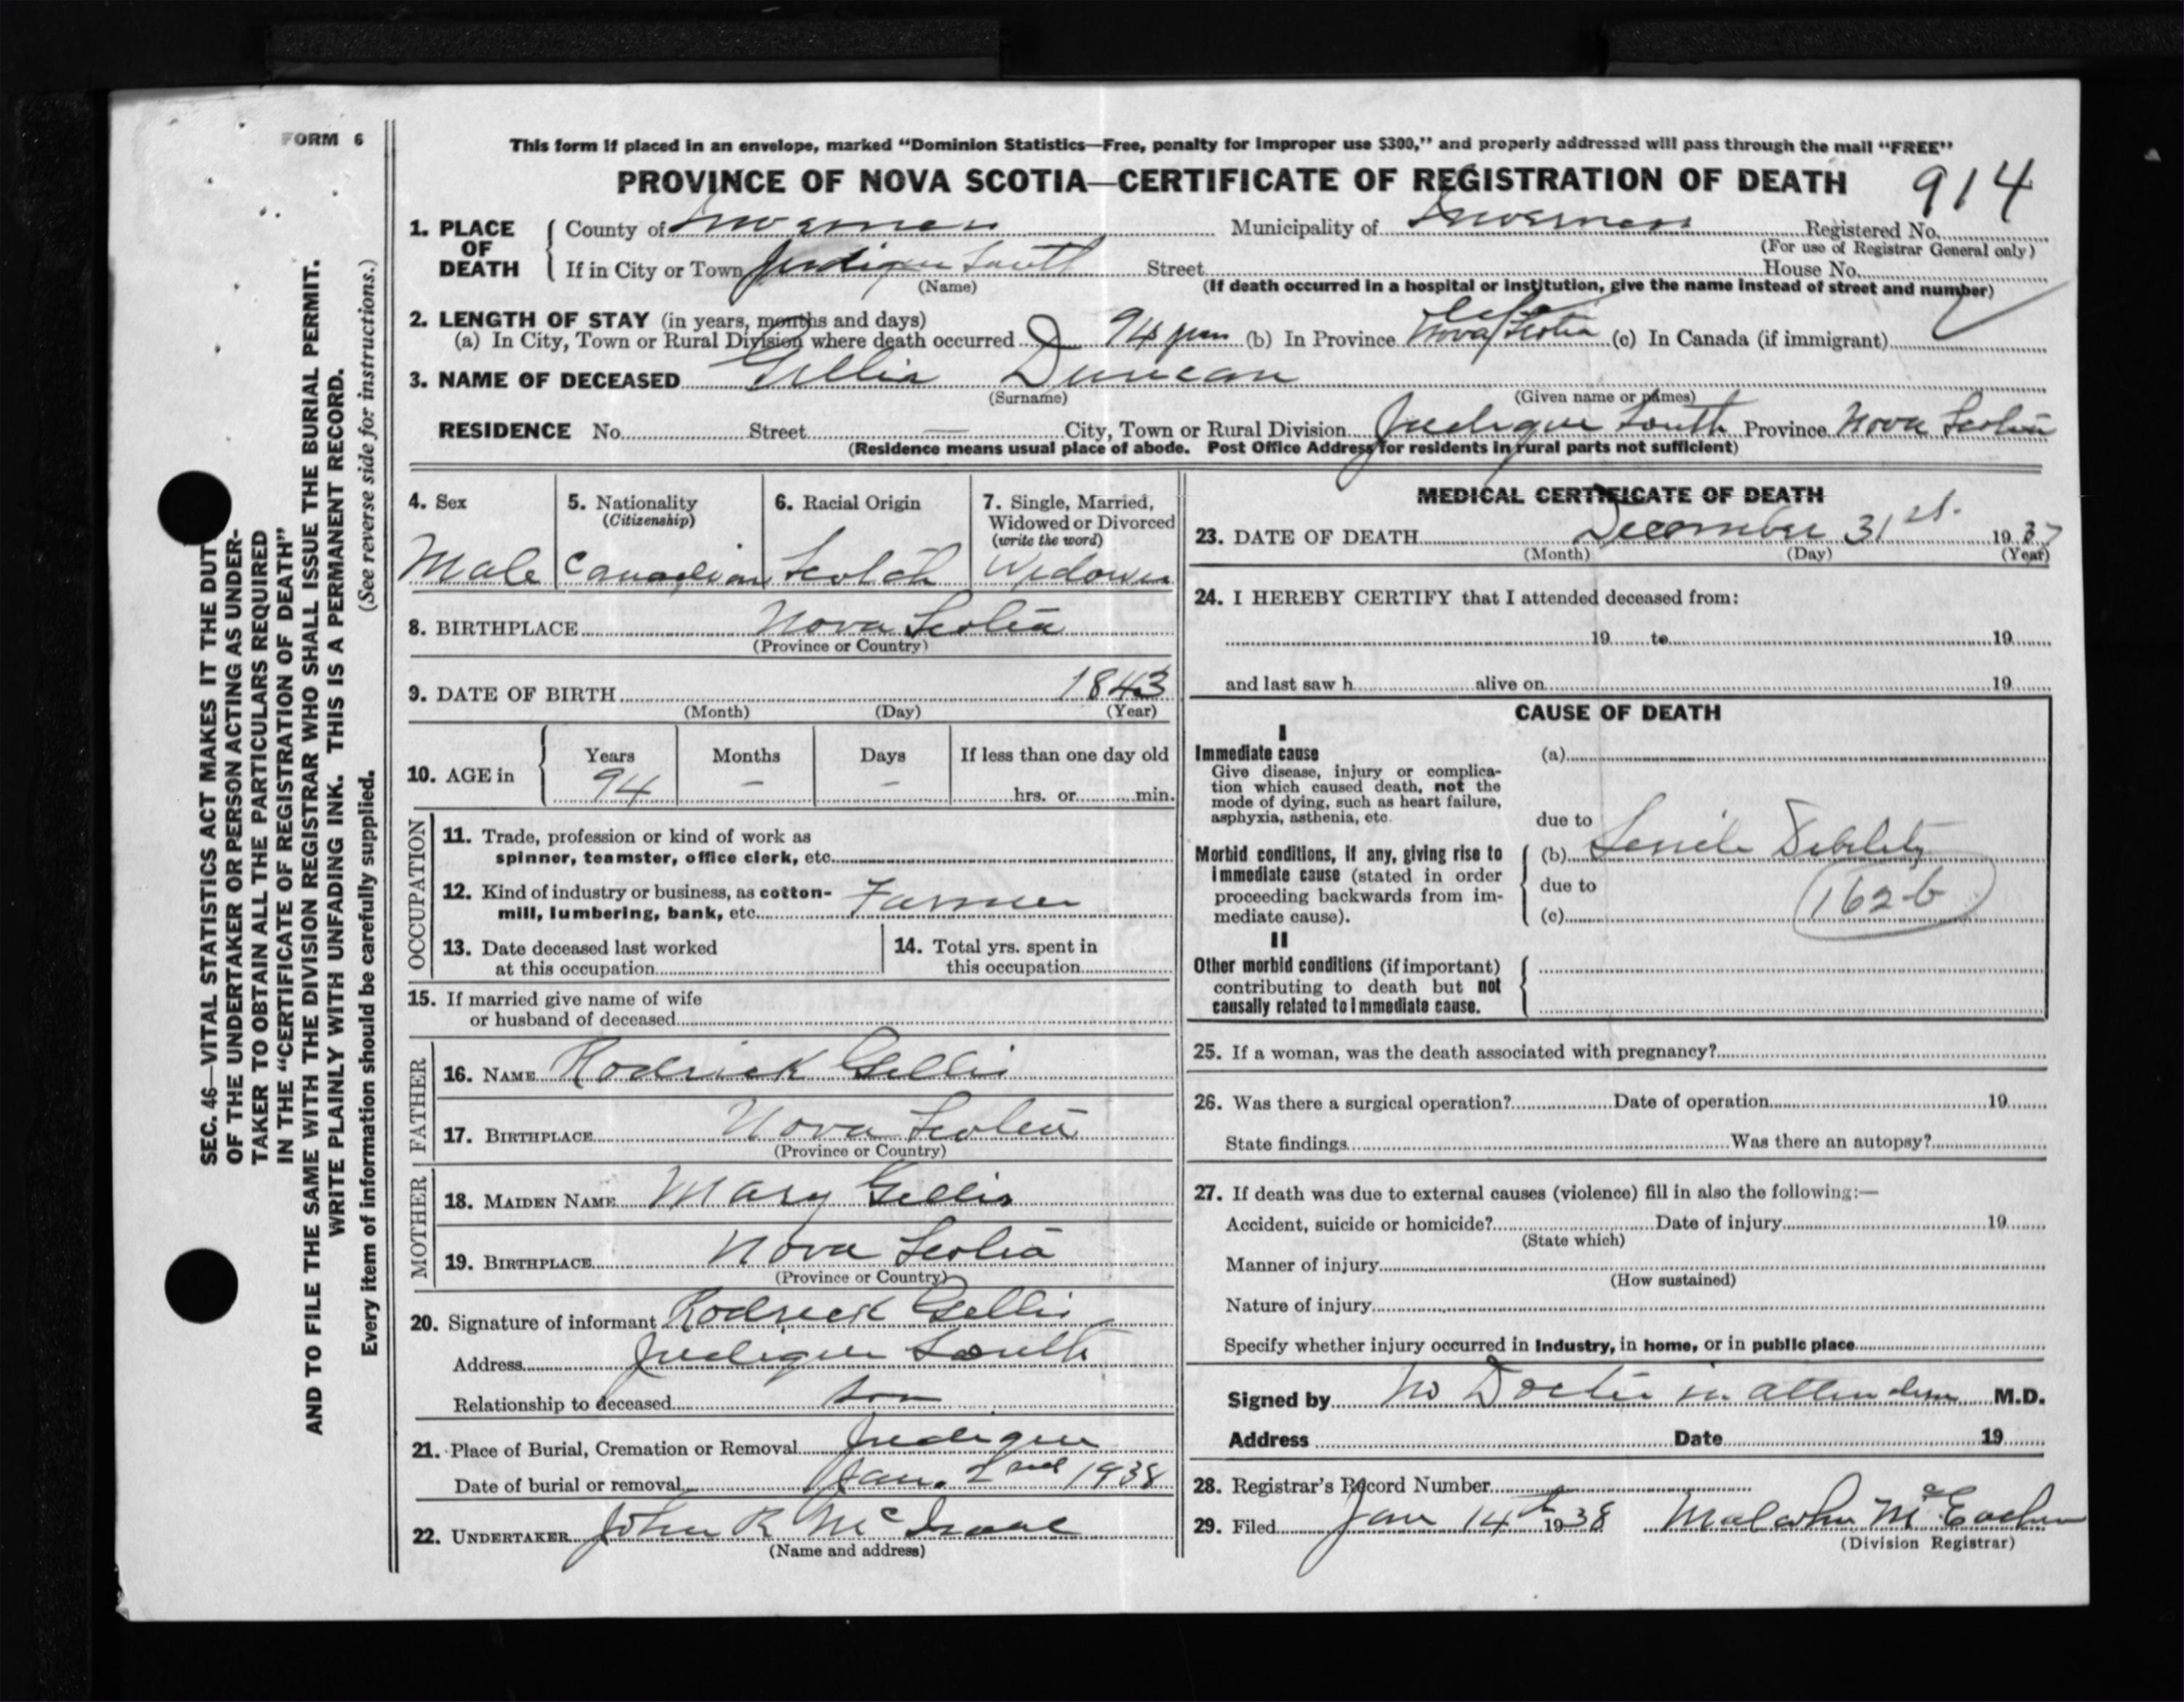 FORM 6
This form if placed in an envelope, marked "Dominion Statistics—Free, penalty for improper use $300," and properly addressed will pass through the mail "FREE"
PROVINCE OF NOVA SCOTIA—CERTIFICATE OF REGISTRATION OF DEATH 914
1. PLACE OF DEATH County of Inverness Municipality of Inverness Registered No.
(For use of Registrar General only)
If in City or Town Judique South Street House No.
(Name) (If death occurred in a hospital or institution, give the name instead of street and number)
2. LENGTH OF STAY (in years, months and days)
(a) In City, Town or Rural Division where death occurred 94 years (b) In Province Life Nova Scotia (c) In Canada (if immigrant)
3. NAME OF DECEASED Gillis Duncan
(Surname) (Given name or names)
RESIDENCE No. Street — City, Town or Rural Division Judique South Province Nova Scotia
(Residence means usual place of abode. Post Office Address for residents in rural parts not sufficient)
4. Sex
Male
5. Nationality
(Citizenship)
Canadian
6. Racial Origin
Scotch
7. Single, Married,
Widowed or Divorced
(write the word)
Widower
8. BIRTHPLACE Nova Scotia
(Province or Country)
9. DATE OF BIRTH 1843
(Month) (Day) (Year)
10. AGE in
Years Months Days If less than one day old
94 – – hrs. or min.
OCCUPATION
11. Trade, profession or kind of work as
spinner, teamster, office clerk, etc.
12. Kind of industry or business, as cotton-
mill, lumbering, bank, etc. Farmer
13. Date deceased last worked
at this occupation
14. Total yrs. spent in
this occupation
15. If married give name of wife
or husband of deceased
FATHER
16. NAME Rodrick Gillis
17. BIRTHPLACE Nova Scotia
(Province or Country)
MOTHER
18. MAIDEN NAME Mary Gillis
19. BIRTHPLACE Nova Scotia
(Province or Country)
20. Signature of informant Rodrick Gillis
Address Judique South
Relationship to deceased son
21. Place of Burial, Cremation or Removal Judique
Date of burial or removal Jan. 2nd 1938
22. UNDERTAKER John R McIsaac
(Name and address)
MEDICAL CERTIFICATE OF DEATH
23. DATE OF DEATH December 31st. 1937
(Month) (Day) (Year)
24. I HEREBY CERTIFY that I attended deceased from:
19 to 19
and last saw h alive on 19
CAUSE OF DEATH
I
Immediate cause (a)
Give disease, injury or complica-
tion which caused death, not the
mode of dying, such as heart failure,
asphyxia, asthenia, etc.
due to
Morbid conditions, if any, giving rise to
immediate cause (stated in order
proceeding backwards from im-
mediate cause).
(b) Senile Debility
due to
(c) 162b
II
Other morbid conditions (if important)
contributing to death but not
causally related to immediate cause.
25. If a woman, was the death associated with pregnancy?
26. Was there a surgical operation? Date of operation 19
State findings Was there an autopsy?
27. If death was due to external causes (violence) fill in also the following:—
Accident, suicide or homicide? Date of injury 19
(State which)
Manner of injury
(How sustained)
Nature of injury
Specify whether injury occurred in industry, in home, or in public place
Signed by No Doctor in attendance M.D.
Address Date 19
28. Registrar's Record Number
29. Filed Jan 14th 1938 Malcolm McEachern
(Division Registrar)
SEC. 46—VITAL STATISTICS ACT MAKES IT THE DUTY
OF THE UNDERTAKER OR PERSON ACTING AS UNDER-
TAKER TO OBTAIN ALL THE PARTICULARS REQUIRED
IN THE "CERTIFICATE OF REGISTRATION OF DEATH"
AND TO FILE THE SAME WITH THE DIVISION REGISTRAR WHO SHALL ISSUE THE BURIAL PERMIT.
WRITE PLAINLY WITH UNFADING INK. THIS IS A PERMANENT RECORD.
Every item of information should be carefully supplied. (See reverse side for instructions.)